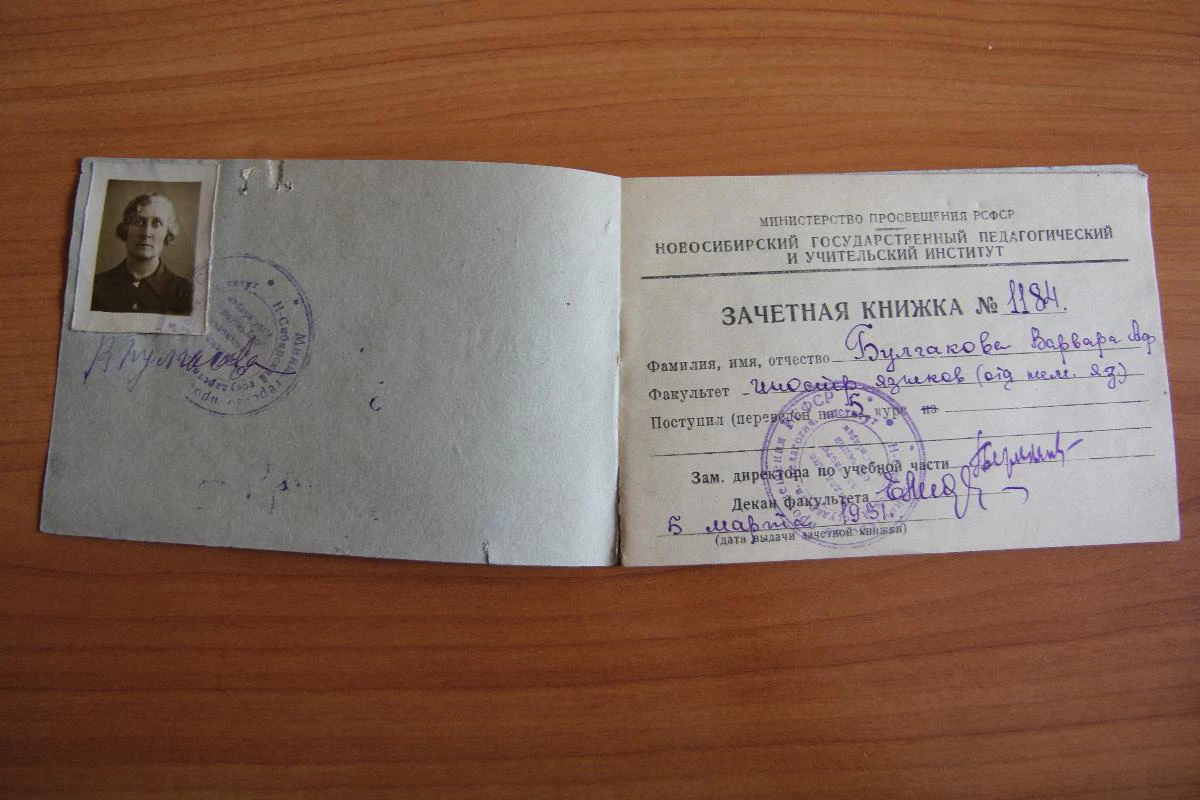 ВБулгакова
МИНИСТЕРСТВО ПРОСВЕЩЕНИЯ РСФСР
НОВОСИБИРСКИЙ ГОСУДАРСТВЕННЫЙ ПЕДАГОГИЧЕСКИЙ
И УЧИТЕЛЬСКИЙ ИНСТИТУТ
ЗАЧЕТНАЯ КНИЖКА № 1184.
Фамилия, имя, отчество Булгакова Варвара Аф
Факультет Иностр языков (отд нем. яз.)
Поступил (переведен на 5 курс из
Зам. директора по учебной части
Декан факультета
5 марта 1951.
(дата выдачи зачетной книжки)